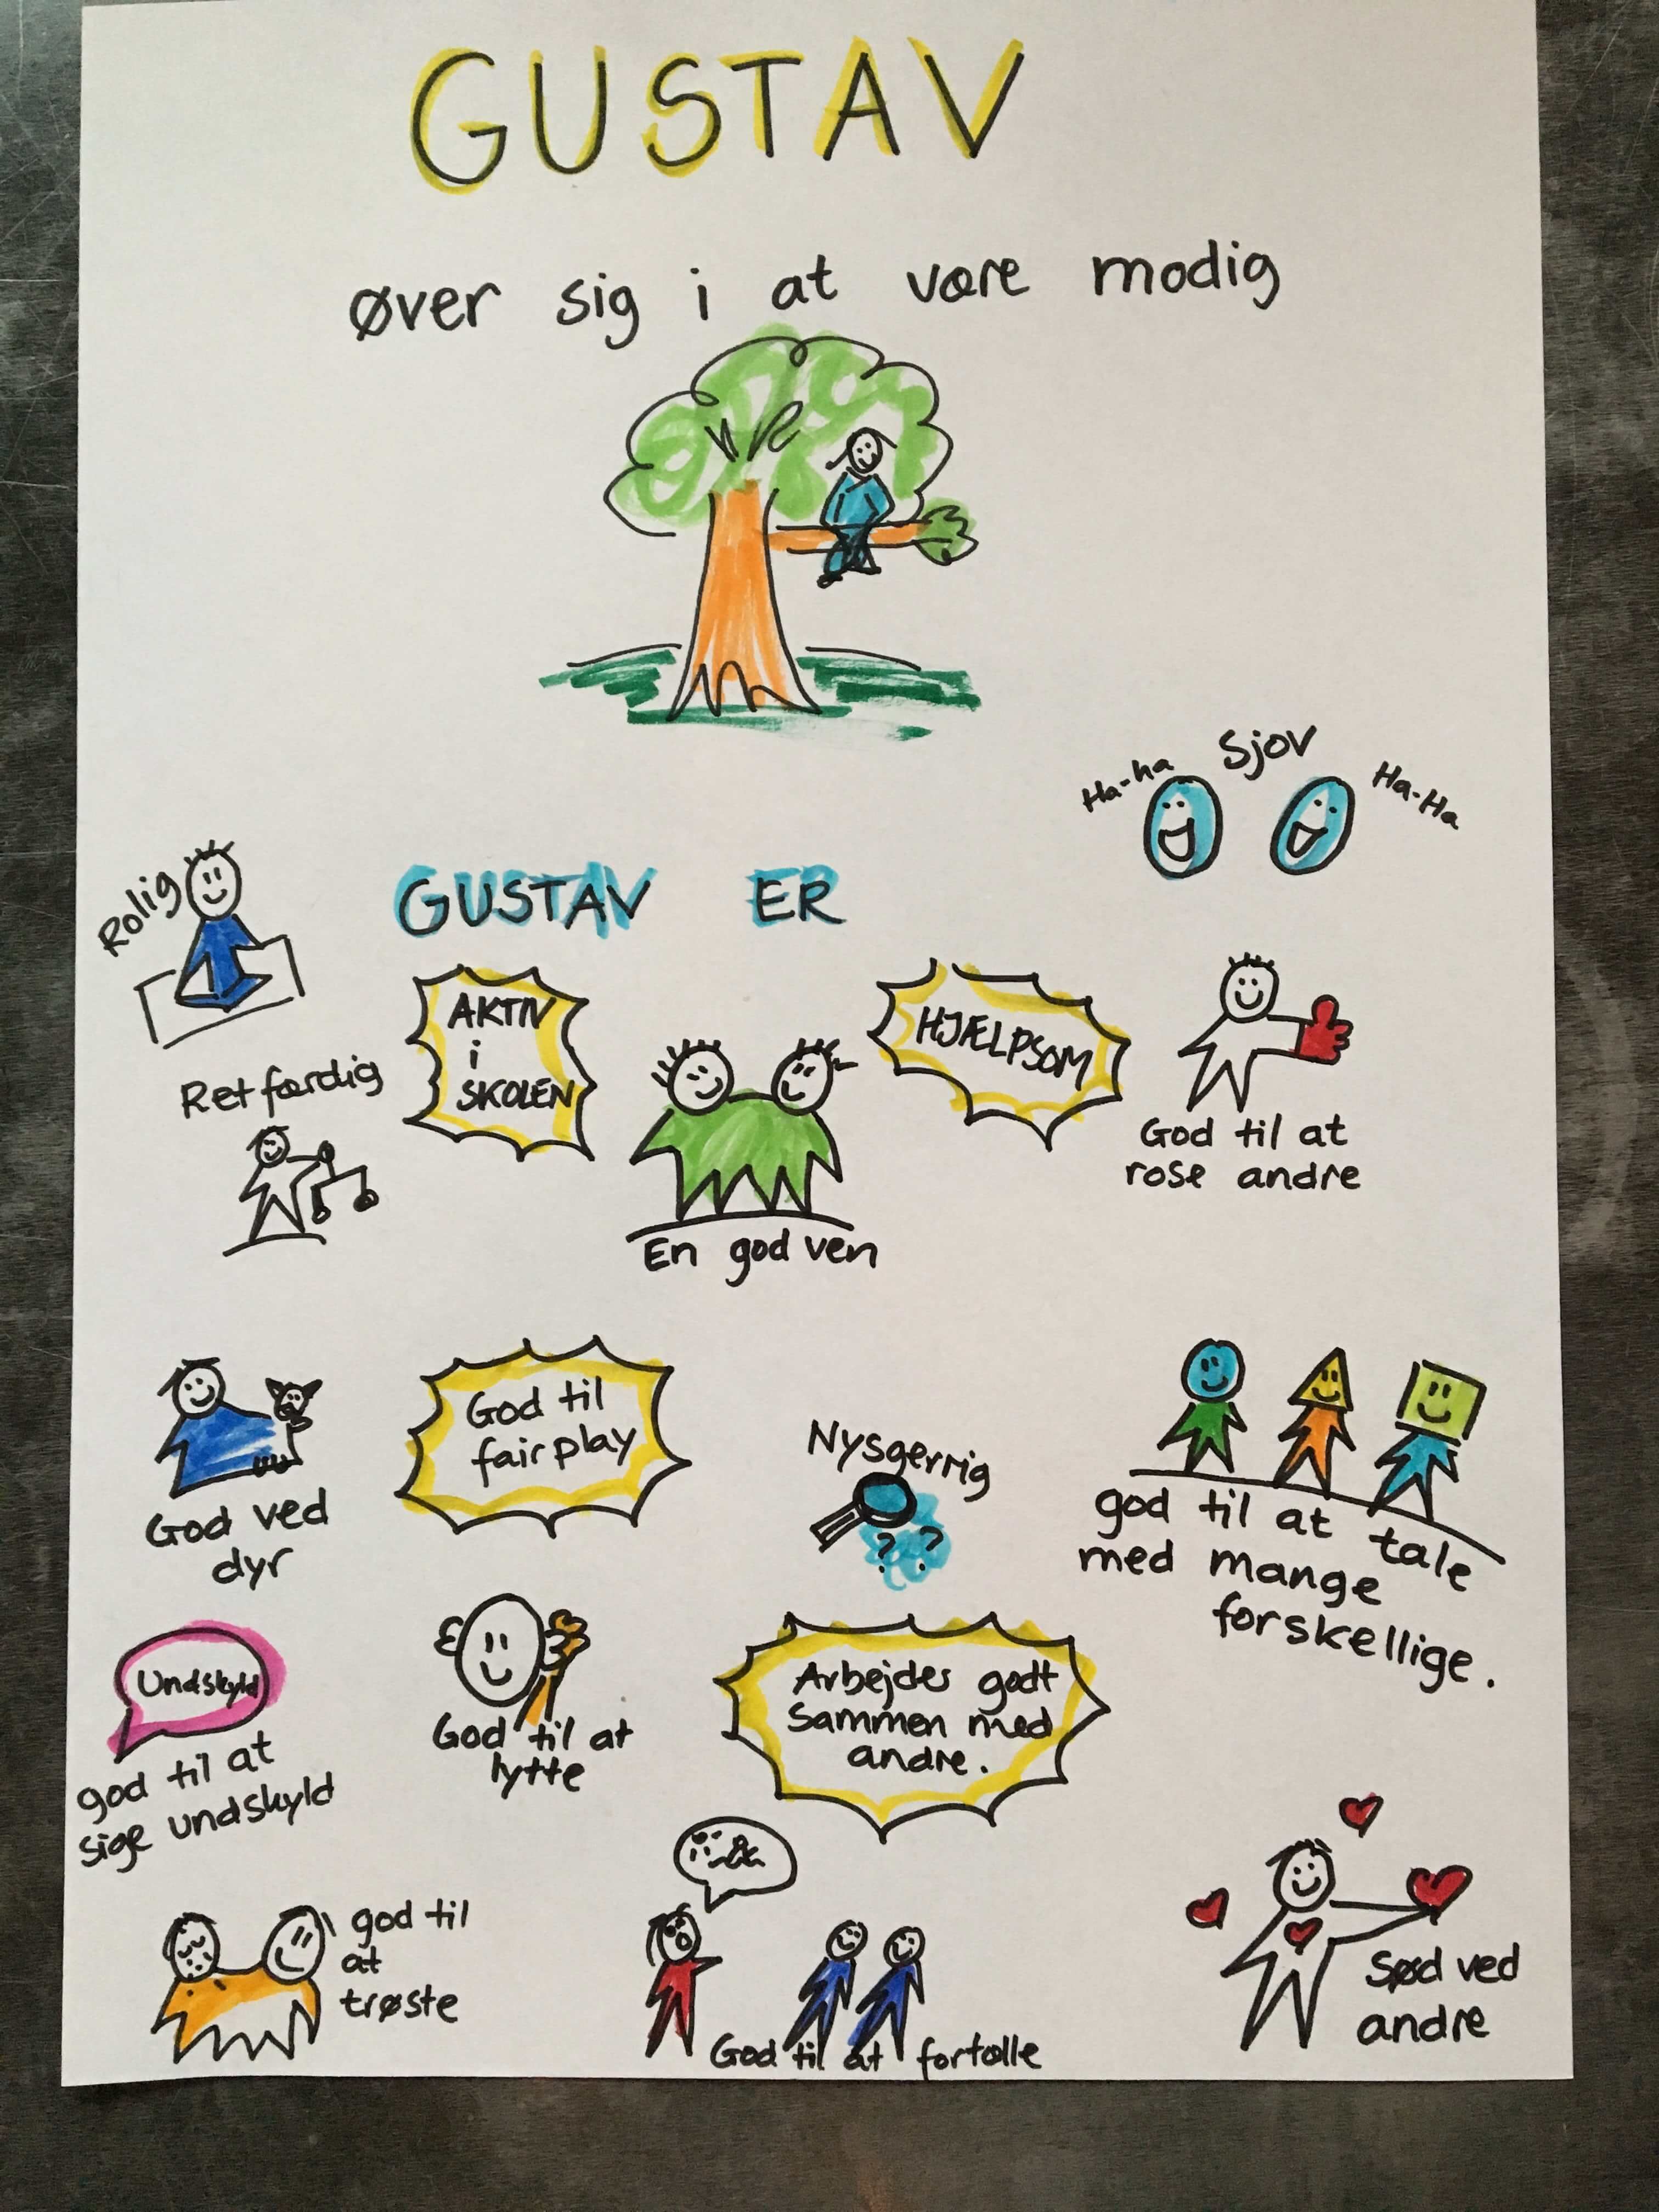 GUSTAV
øver sig i at være modig
Sjov
Ha-ha
Ha-Ha
Rolig
GUSTAV ER
AKTIV
i
SKOLEN
HJÆLPSOM
Retfærdig
God til at
rose andre
En god ven
God til
fairplay
Nysgerrig
God ved
dyr
god til at tale
med mange
forskellige.
Undskyld
god til at
sige undskyld
God til at
lytte
Arbejder godt
Sammen med
andre.
god til
at
trøste
God til at fortælle
Sød ved
andre